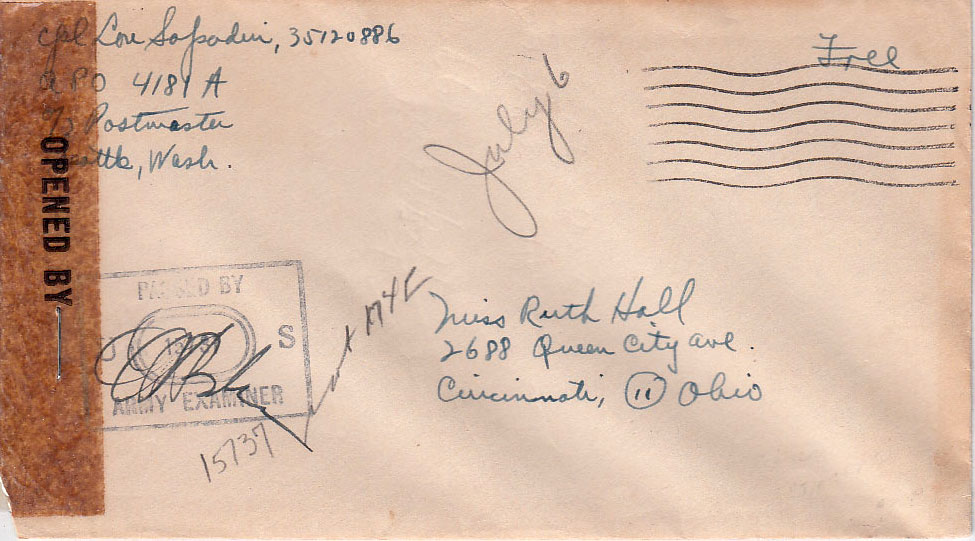 Cpl Lou Sapadin, 35120886
APO 4181 A
% Postmaster
Seattle, Wash.
Free
July 6
OPENED BY
PASSED BY
U S
ARMY EXAMINER
15737
Miss Ruth Hall
2688 Queen City ave.
Cincinnati, 11 Ohio